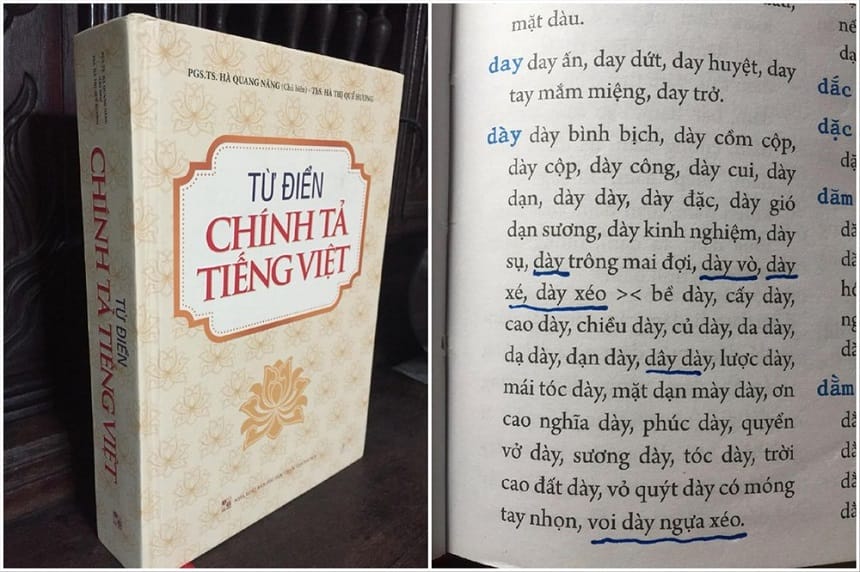 PGS.TS. HÀ QUANG NĂNG (Chủ biên) - ThS. HÀ THỊ QUẾ HƯƠNG
TỪ ĐIỂN
CHÍNH TẢ
TIẾNG VIỆT
TỪ ĐIỂN
CHÍNH TẢ TIẾNG VIỆT
mặt dàu.
day day ấn, day dứt, day huyệt, day
tay mắm miệng, day trở.
dày dày bình bịch, dày cồm cộp,
dày cộp, dày công, dày cui, dày
dạn, dày dày, dày đặc, dày gió
dạn sương, dày kinh nghiệm, dày
sụ, dày trông mai đợi, dày vò, dày
xé, dày xéo >< bề dày, cấy dày,
cao dày, chiều dày, củ dày, da dày,
dạ dày, dạn dày, dây dày, lược dày,
mái tóc dày, mặt dạn mày dày, ơn
cao nghĩa dày, phúc dày, quyển
vở dày, sương dày, tóc dày, trời
cao đất dày, vỏ quýt dày có móng
tay nhọn, voi dày ngựa xéo.
dắc
đặc
dăm
dằm